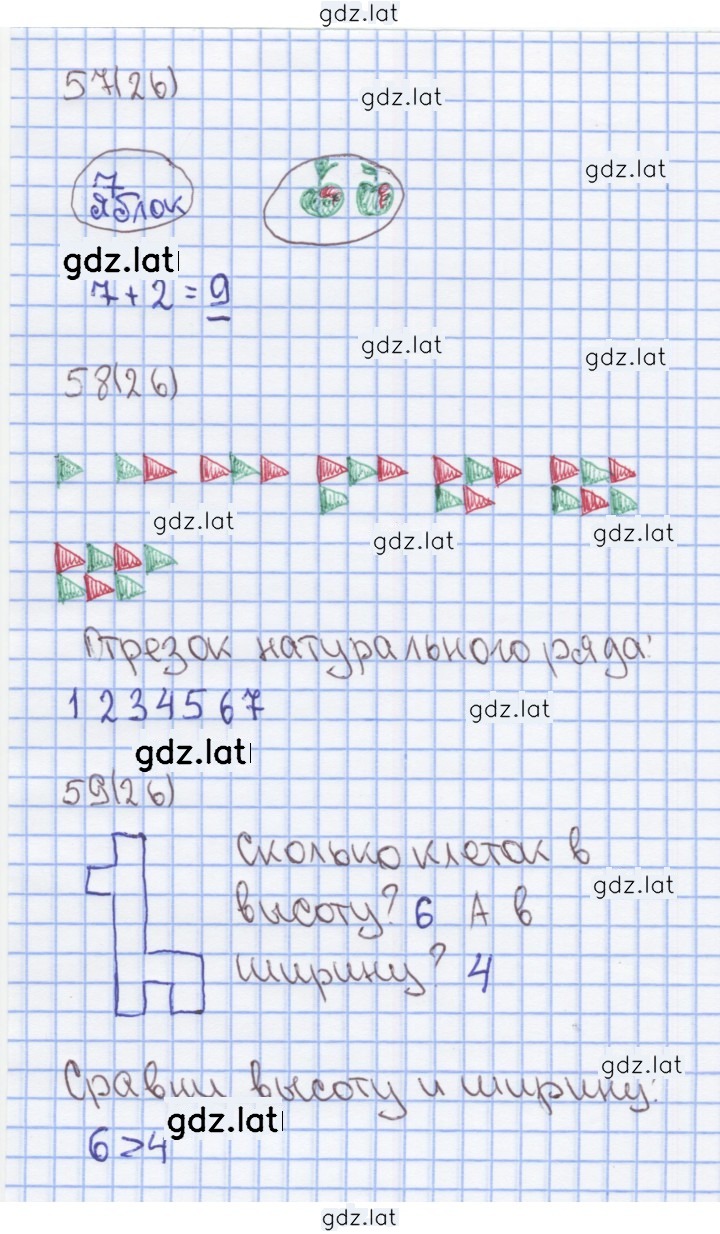 gdz.lat
57(26)
gdz.lat
gdz.lat
7
яблок
gdz.lat
7 + 2 = 9
gdz.lat
gdz.lat
58(26)
gdz.lat
gdz.lat
gdz.lat
Отрезок натурального ряда:
1 2 3 4 5 6 7
gdz.lat
gdz.lat
59(26)
Сколько клеток в
gdz.lat
высоту? 6 А в
ширину? 4
gdz.lat
Сравни высоту и ширину:
gdz.lat
6 > 4
gdz.lat